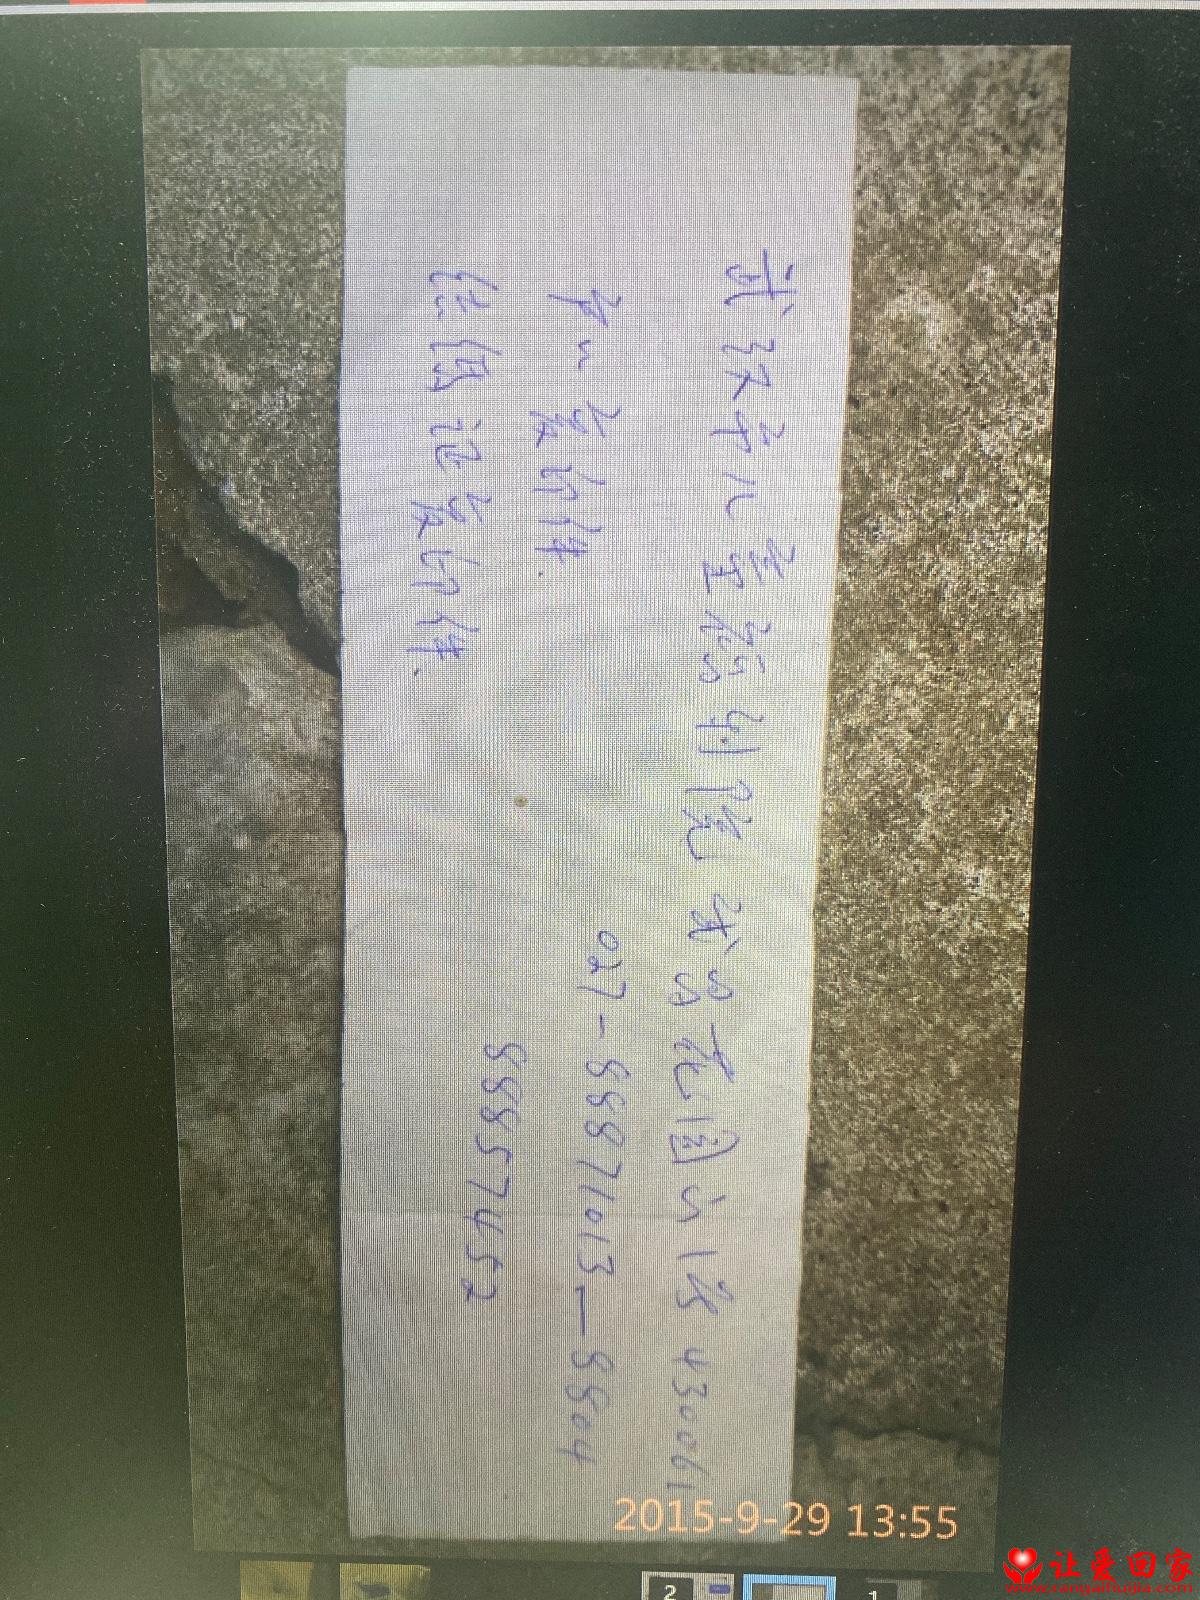 武汉市儿童福利院 武昌花园山1号 430061
复印件. 027-88871013—8804
证复印件. 88857452
2015-9-29 13:55
2
1
让爱回家
www.rangaihuijia.com